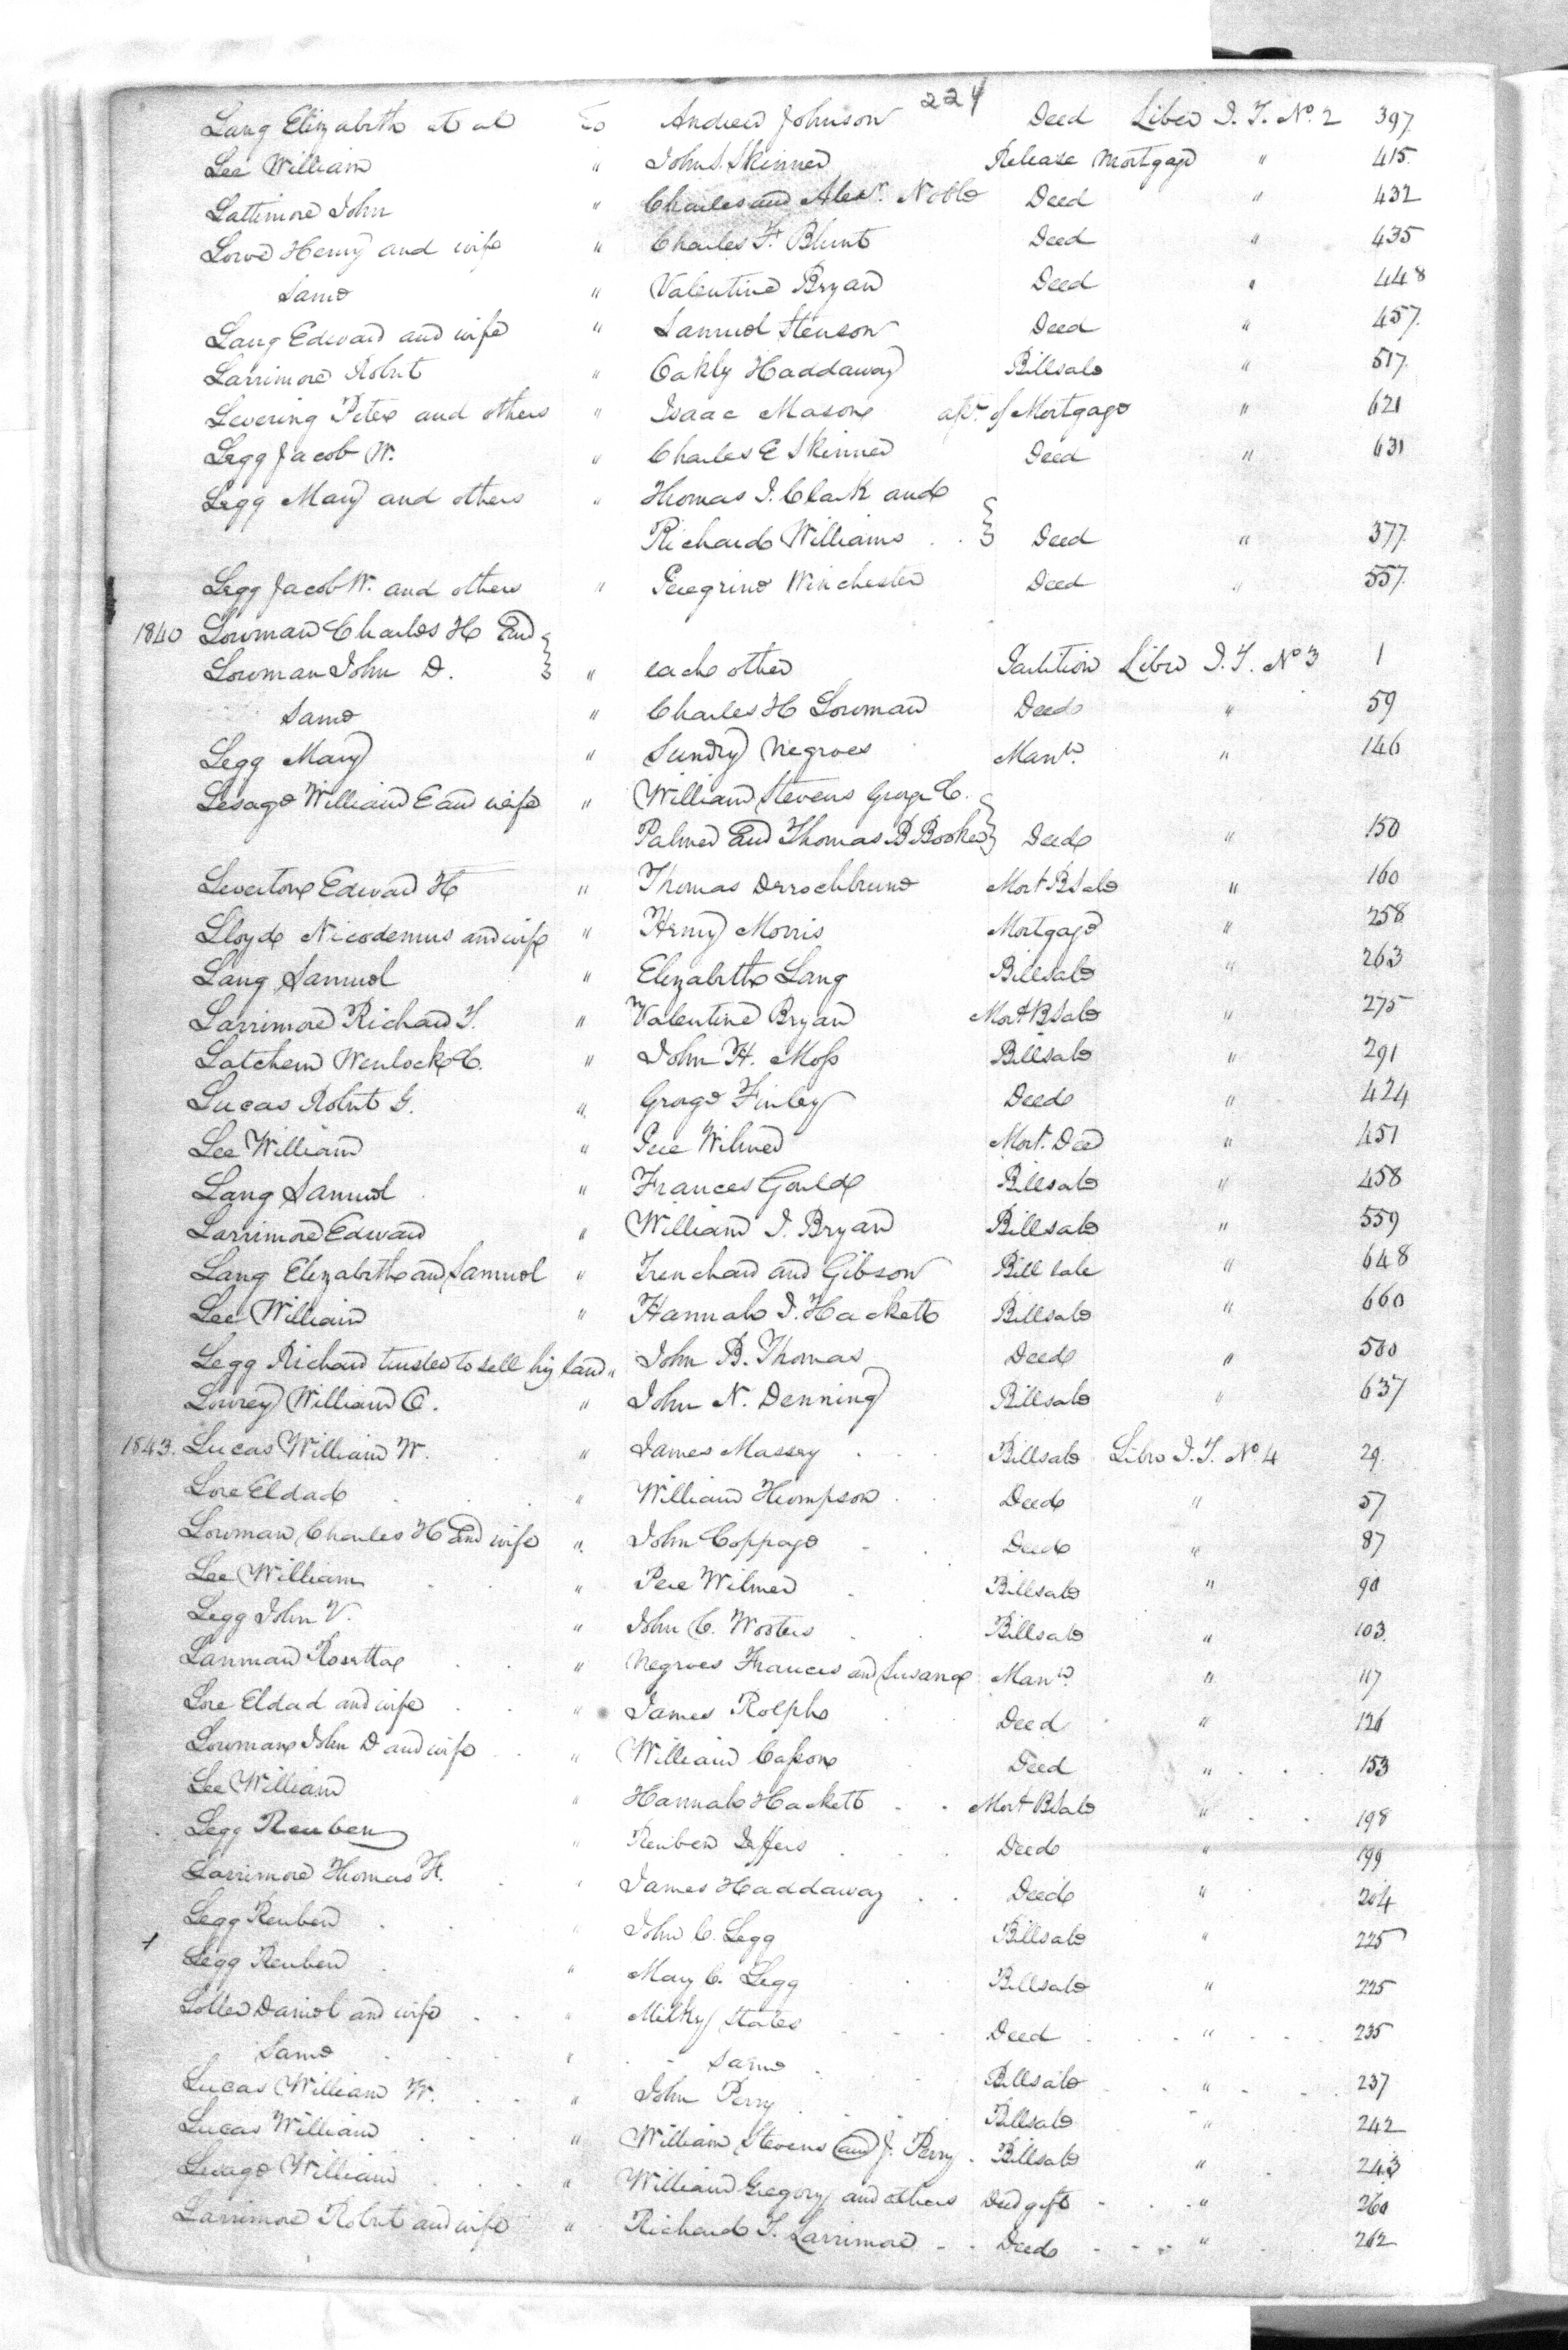 224
Lang Elizabeth et al to Andrew Johnson Deed Liber I. T. No. 2 397
Lee William " John S. Skinner Release Mortgage " 415
Lattimore John " Charles and Alexr. Noble Deed " 432
Lowe Henry and wife " Charles H. Blunt Deed " 435
Same " Valentine Bryan Deed " 448
Lang Edward and wife " Samuel Henson Deed " 457
Larrimore Robert " Oakly Haddaway Billsale " 517
Levering Peter and others " Isaac Mason of Mortgage " 621
Legg Jacob W. " Charles E Skinner Deed " 631
Legg Mary and others " Thomas I. Clark and
Richard Williams Deed " 377
Legg Jacob W. and others " Peregrine Winchester Deed " 557
1840 Lowman Charles H And
Lowman John D. " each other Partition Liber I. T. No 3 1
Same " Charles H Lowman Deed " 59
Legg Mary " Sundry Negroes Mann. " 146
Lesage William E and wife " William Stevens George C.
Palmer And Thomas B Booker Deed " 150
Leverton Edward H " Thomas Derrochbrune Mort BSale " 160
Lloyd Nicodemus and wife " Henry Morris Mortgage " 258
Lang Samuel " Elizabeth Lang Billsale " 263
Larrimore Richard T. " Valentine Bryan Mort BSale " 275
Latchem Wenlock C. " John H. Moss Billsale " 291
Lucas Robert G. " George Finley Deed " 424
Lee William " Pere Wilmer Mort. Deed " 451
Lang Samuel " Frances Gould Billsale " 458
Larrimore Edward " William I. Bryan Billsale " 559
Lang Elizabeth and Samuel " Trenchard and Gibson Bill sale " 648
Lee William " Hannah I. Hackett Billsale " 660
Legg Richard trustee to sell his land " John B. Thomas Deed " 500
Lowrey William C. " John N. Denning Billsale " 637
1843. Lucas William W. " James Massey Billsale Liber I. T. No 4 29
Lore Eldad " William Thompson Deed " 57
Lowman Charles H And wife " John Coppage Deed " 87
Lee William " Pere Wilmer Billsale " 90
Legg John V. " John C. Wosters Billsale " 103
Lanman Rosetta " Negroes Frances and Susan Mann. " 117
Lore Eldad and wife " James Rolph Deed " 126
Lowman John D and wife " William Casson Deed " 153
Lee William " Hannah Hackett Mort BSale " 198
Legg Reuben " Reuben Jeffers Deed " 199
Larrimore Thomas H. " James Haddaway Deed " 204
Legg Reuben " John C. Legg Billsale " 225
Legg Reuben " Mary C. Legg Billsale " 225
Loller Daniel and wife " Milky States Deed " 235
Same " Same Billsale " 237
Lucas William W. " John Perry Billsale " 242
Lucas William " William Stevens and J. Perry Billsale " 243
Lesage William " William Gregory and others Deed gift " 260
Larrimore Robert and wife " Richard T. Larrimore Deed " 262